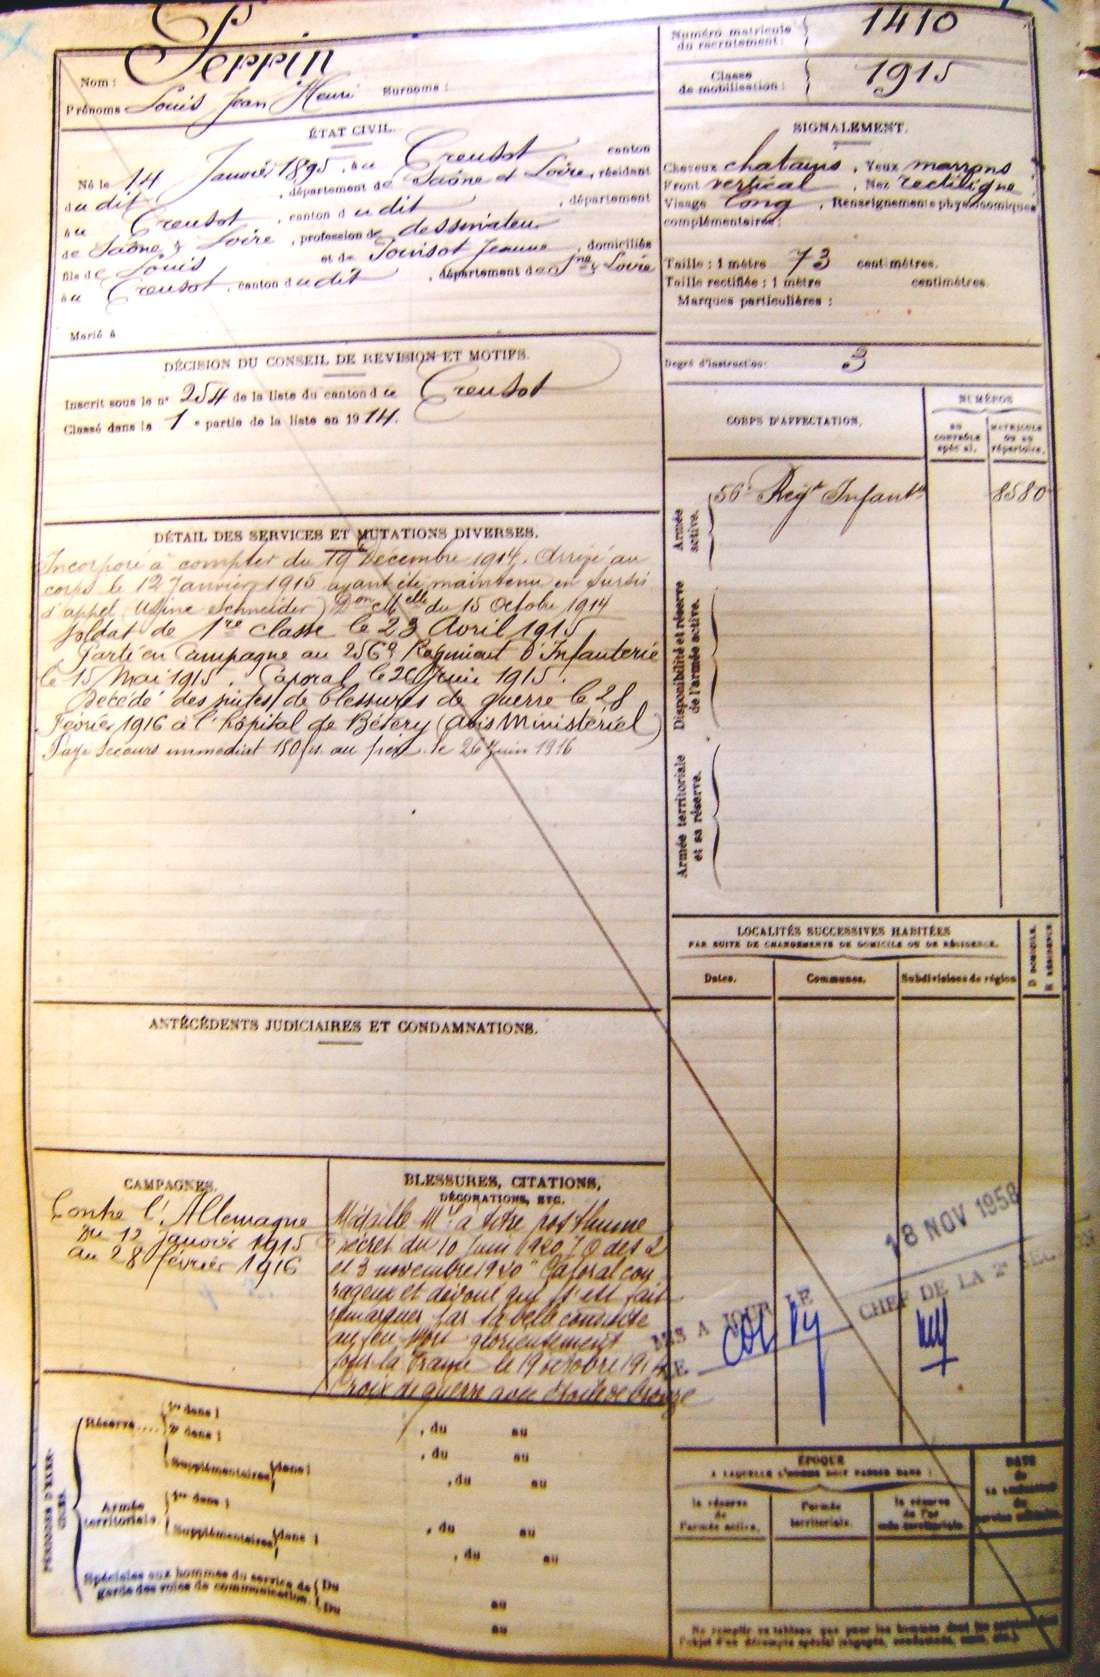 Perrin
Nom :
Prénoms Louis Jean Henri Surnoms :
Numéro matricule du recrutement : 1410
Classe de mobilisation : 1915
ÉTAT CIVIL.
Né le 14 Janvier 1895, à u Creusot canton
du dit, département de Saône et Loire, résidant
à u Creusot, canton d u dit, département
de Saône & Loire, profession de dessinateur
fils de Louis et de Jeanne, domiciliés
à u Creusot, canton d u dit, département de Sne & Loire
Marié à
SIGNALEMENT.
Cheveux chatains, Yeux marrons
Front vertical, Nez rectiligne
Visage long, Renseignements physionomiques
complémentaires :
Taille : 1 mètre 73 centimètres.
Taille rectifiée : 1 mètre centimètres.
Marques particulières :
Degré d'instruction : 3
DÉCISION DU CONSEIL DE REVISION ET MOTIFS.
Inscrit sous le n° 254 de la liste du canton d u Creusot
Classé dans la 1 e partie de la liste en 1914.
CORPS D'AFFECTATION.
NUMÉROS
AU CONTRÔLE spécial.
MATRICULE OU AU répertoire.
Armée active.
56e Regt Infantie 8580
Disponibilité et réserve de l'armée active.
Armée territoriale et sa réserve.
DÉTAIL DES SERVICES ET MUTATIONS DIVERSES.
Incorporé à compter du 19 Décembre 1914. Arrivé au
corps le 12 Janvier 1915 ayant été maintenu en sursis
d'appel (Usine Schneider) Don Mtelle du 15 Octobre 1914
Soldat de 1re classe le 23 Avril 1915
Parti en Campagne au 256e Régiment d'Infanterie
le 15 Mai 1915. Caporal le 20 Juin 1915.
Décédé des suites de blessures de guerre le 28
Février 1916 à l'hôpital de (Avis Ministériel)
Payé Secours immédiat 150 fs au père le 26 Juin 1916
LOCALITÉS SUCCESSIVES HABITÉES
PAR SUITE DE CHANGEMENTS DE DOMICILE OU DE RÉSIDENCE.
Dates.
Communes.
Subdivisions de région
D DOMICILE.
R RÉSIDENCE
ANTÉCÉDENTS JUDICIAIRES ET CONDAMNATIONS.
CAMPAGNES.
Contre l'Allemagne
Du 12 Janvier 1915
au 28 février 1916
BLESSURES, CITATIONS,
DÉCORATIONS, ETC.
Médaille Mre à titre posthume
Décret du 10 Juin 1920 JO des 2
et 3 novembre 1920 "Caporal cou
rageux et dévoué qui s'est fait
remarquer par sa belle conduite
au feu. Mort glorieusement
pour la France le 19 octobre 191
Croix de guerre avec étoile de bronze
18 NOV 1958
MIS A JOUR LE
LE CHEF DE LA 2e SECTION
PÉRIODES D'EXERCICES.
Réserve.... 1re dans l , du au
2e dans l , du au
Supplémentaires dans l , du au
Armée territoriale. 1re dans l , du au
Supplémentaires dans l , du au
Spéciales aux hommes du service de garde des voies de communication. Du au
Du au
ÉPOQUE
A LAQUELLE L'HOMME DOIT PASSER DANS :
la réserve de l'armée active.
l'armée territoriale.
la réserve de l'armée territoriale
DATE de la libération du service militaire.
Ne remplir ce tableau que pour les hommes dont les services font
l'objet d'un décompte spécial